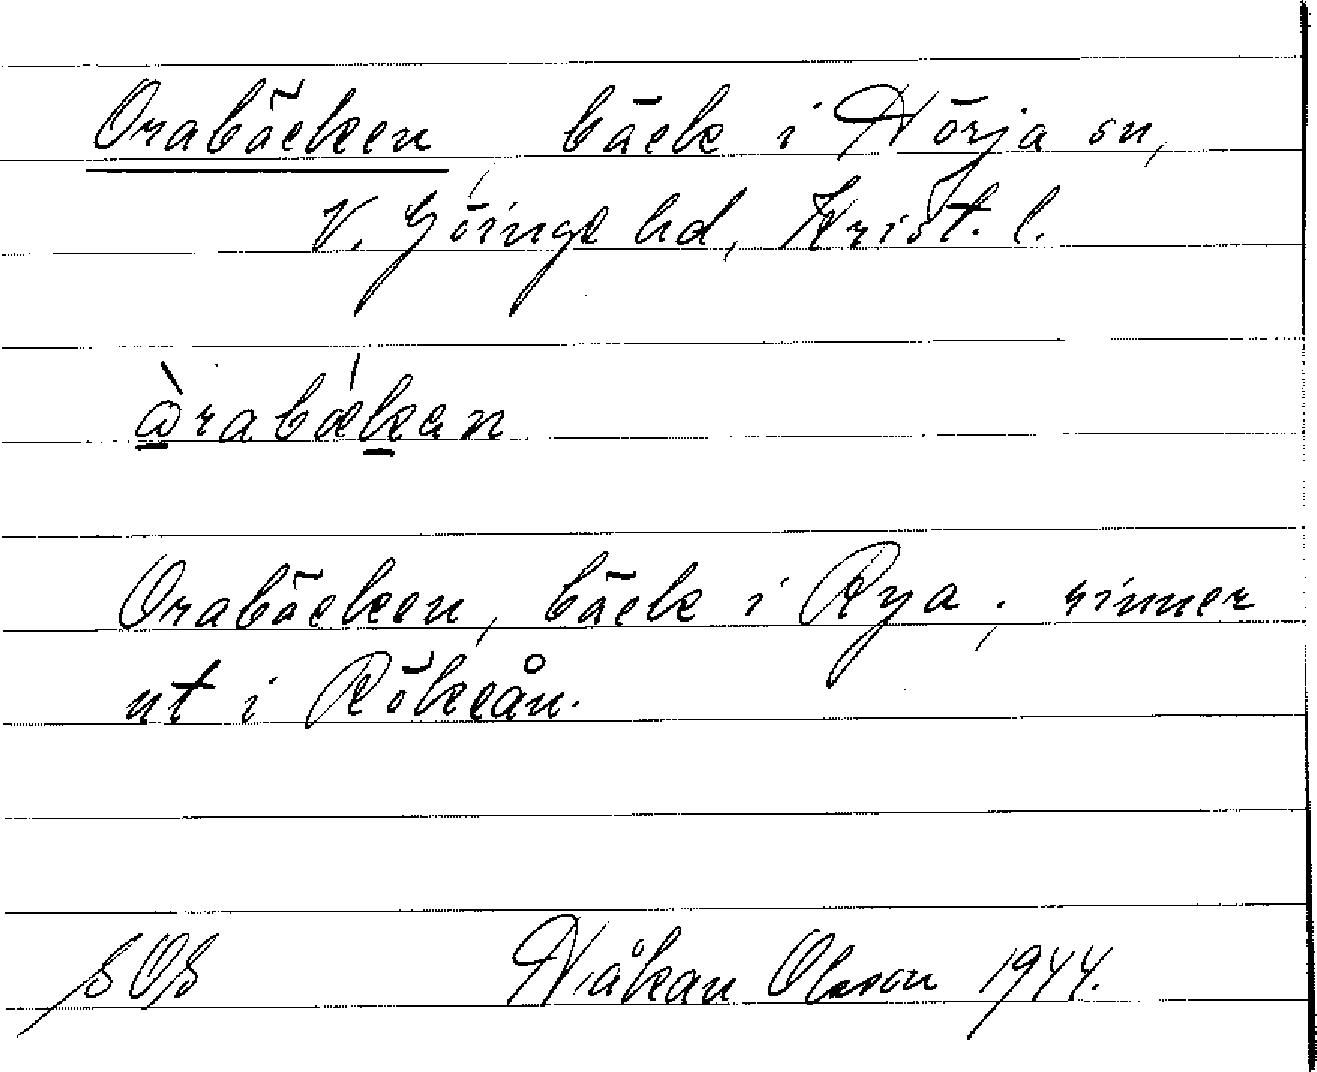 Orabäcken, bäck i Hörja sn,
V. Göinge hd, Krist. l.
Orabäcken, bäck i Rya; rinner
ut i Rökeån.
SOS Håkan Olsson 1944.